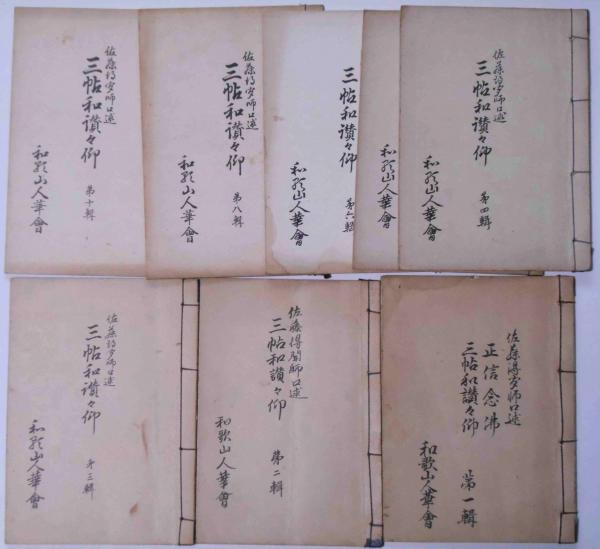 佐藤得聞師口述
三帖和讃々仰
第四輯
和歌山人華會
和歌山
三帖和讃々仰
第六輯
和歌山人華會
佐藤得聞師口述
三帖和讃々仰
第八輯
和歌山人華會
佐藤得聞師口述
三帖和讃々仰
第十輯
和歌山人華會
佐藤得聞師口述
正信念佛
三帖和讃々仰
第一輯
和歌山人華會
佐藤得聞師口述
三帖和讃々仰
第二輯
和歌山人華會
佐藤得聞師口述
三帖和讃々仰
第三輯
和歌山人華會